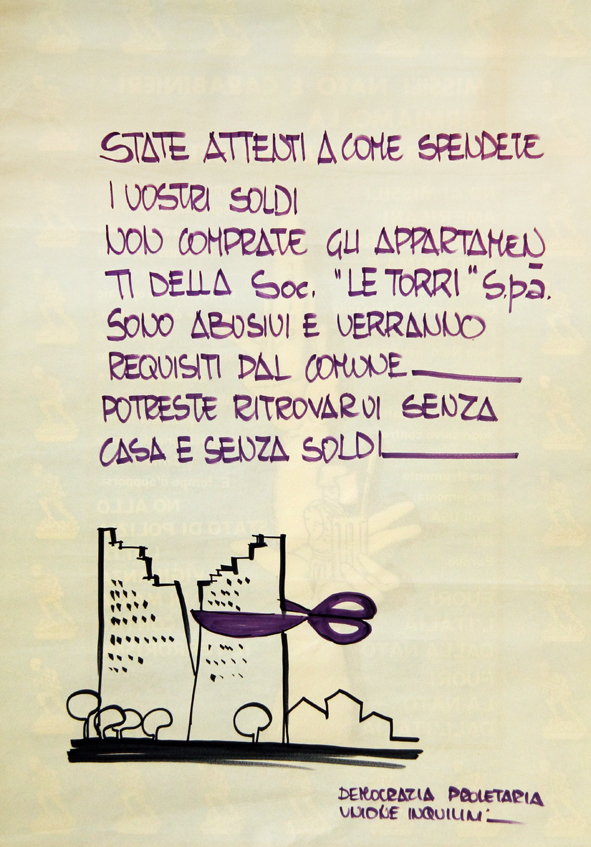 STATE ATTENTI A COME SPENDETE
I VOSTRI SOLDI
NON COMPRATE GLI APPARTAMEN
TI DELLA Soc. "LE TORRI" S.p.a.
SONO ABUSIVI E VERRANNO
REQUISITI DAL COMUNE
POTRESTE RITROVARVI SENZA
CASA E SENZA SOLDI
DEMOCRAZIA PROLETARIA
UNIONE INQUILINI